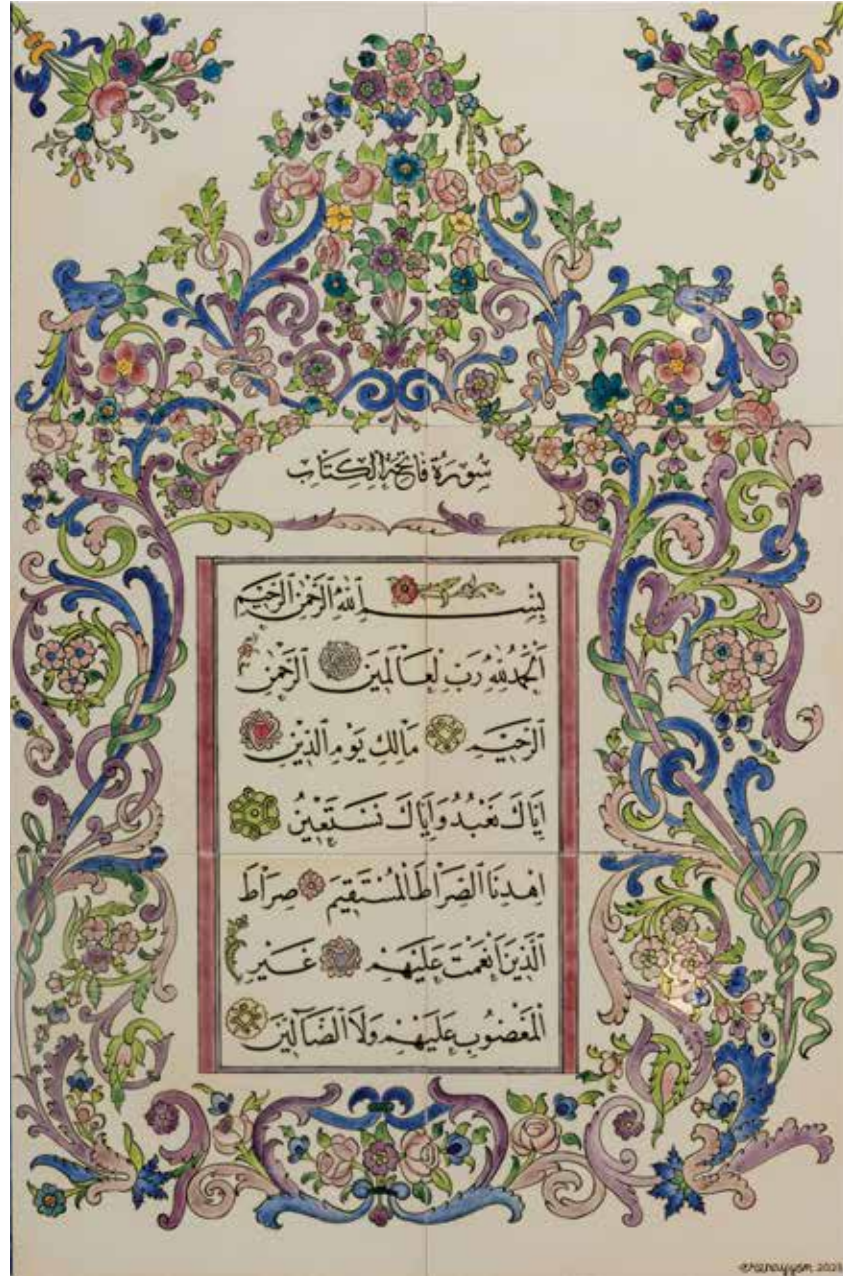 سُورَةُ فَاتِحَةِ الْكِتَابِ
بِسْمِ اللهِ الرَّحْمٰنِ الرَّحِيمِ
اَلْحَمْدُ لِلّٰهِ رَبِّ الْعَالَمِينَ الرَّحْمٰنِ
الرَّحِيمِ مَالِكِ يَوْمِ الدِّينِ
اِيَّاكَ نَعْبُدُ وَاِيَّاكَ نَسْتَعِينُ
اِهْدِنَا الصِّرَاطَ الْمُسْتَقِيمَ صِرَاطَ
الَّذِينَ اَنْعَمْتَ عَلَيْهِمْ غَيْرِ
الْمَغْضُوبِ عَلَيْهِمْ وَلَا الضَّٓالِّينَ
2023